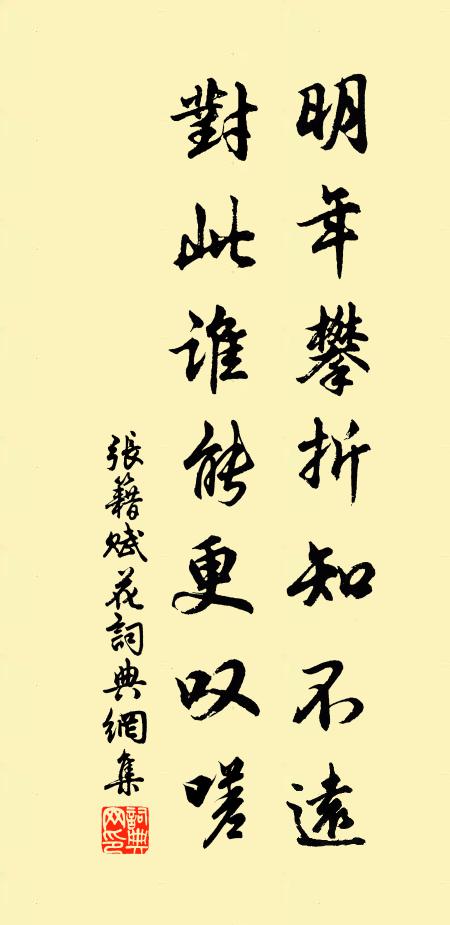 明年攀折知不遠
對此誰能更叹嗟
張籍賦花詞典網集
詞典网印